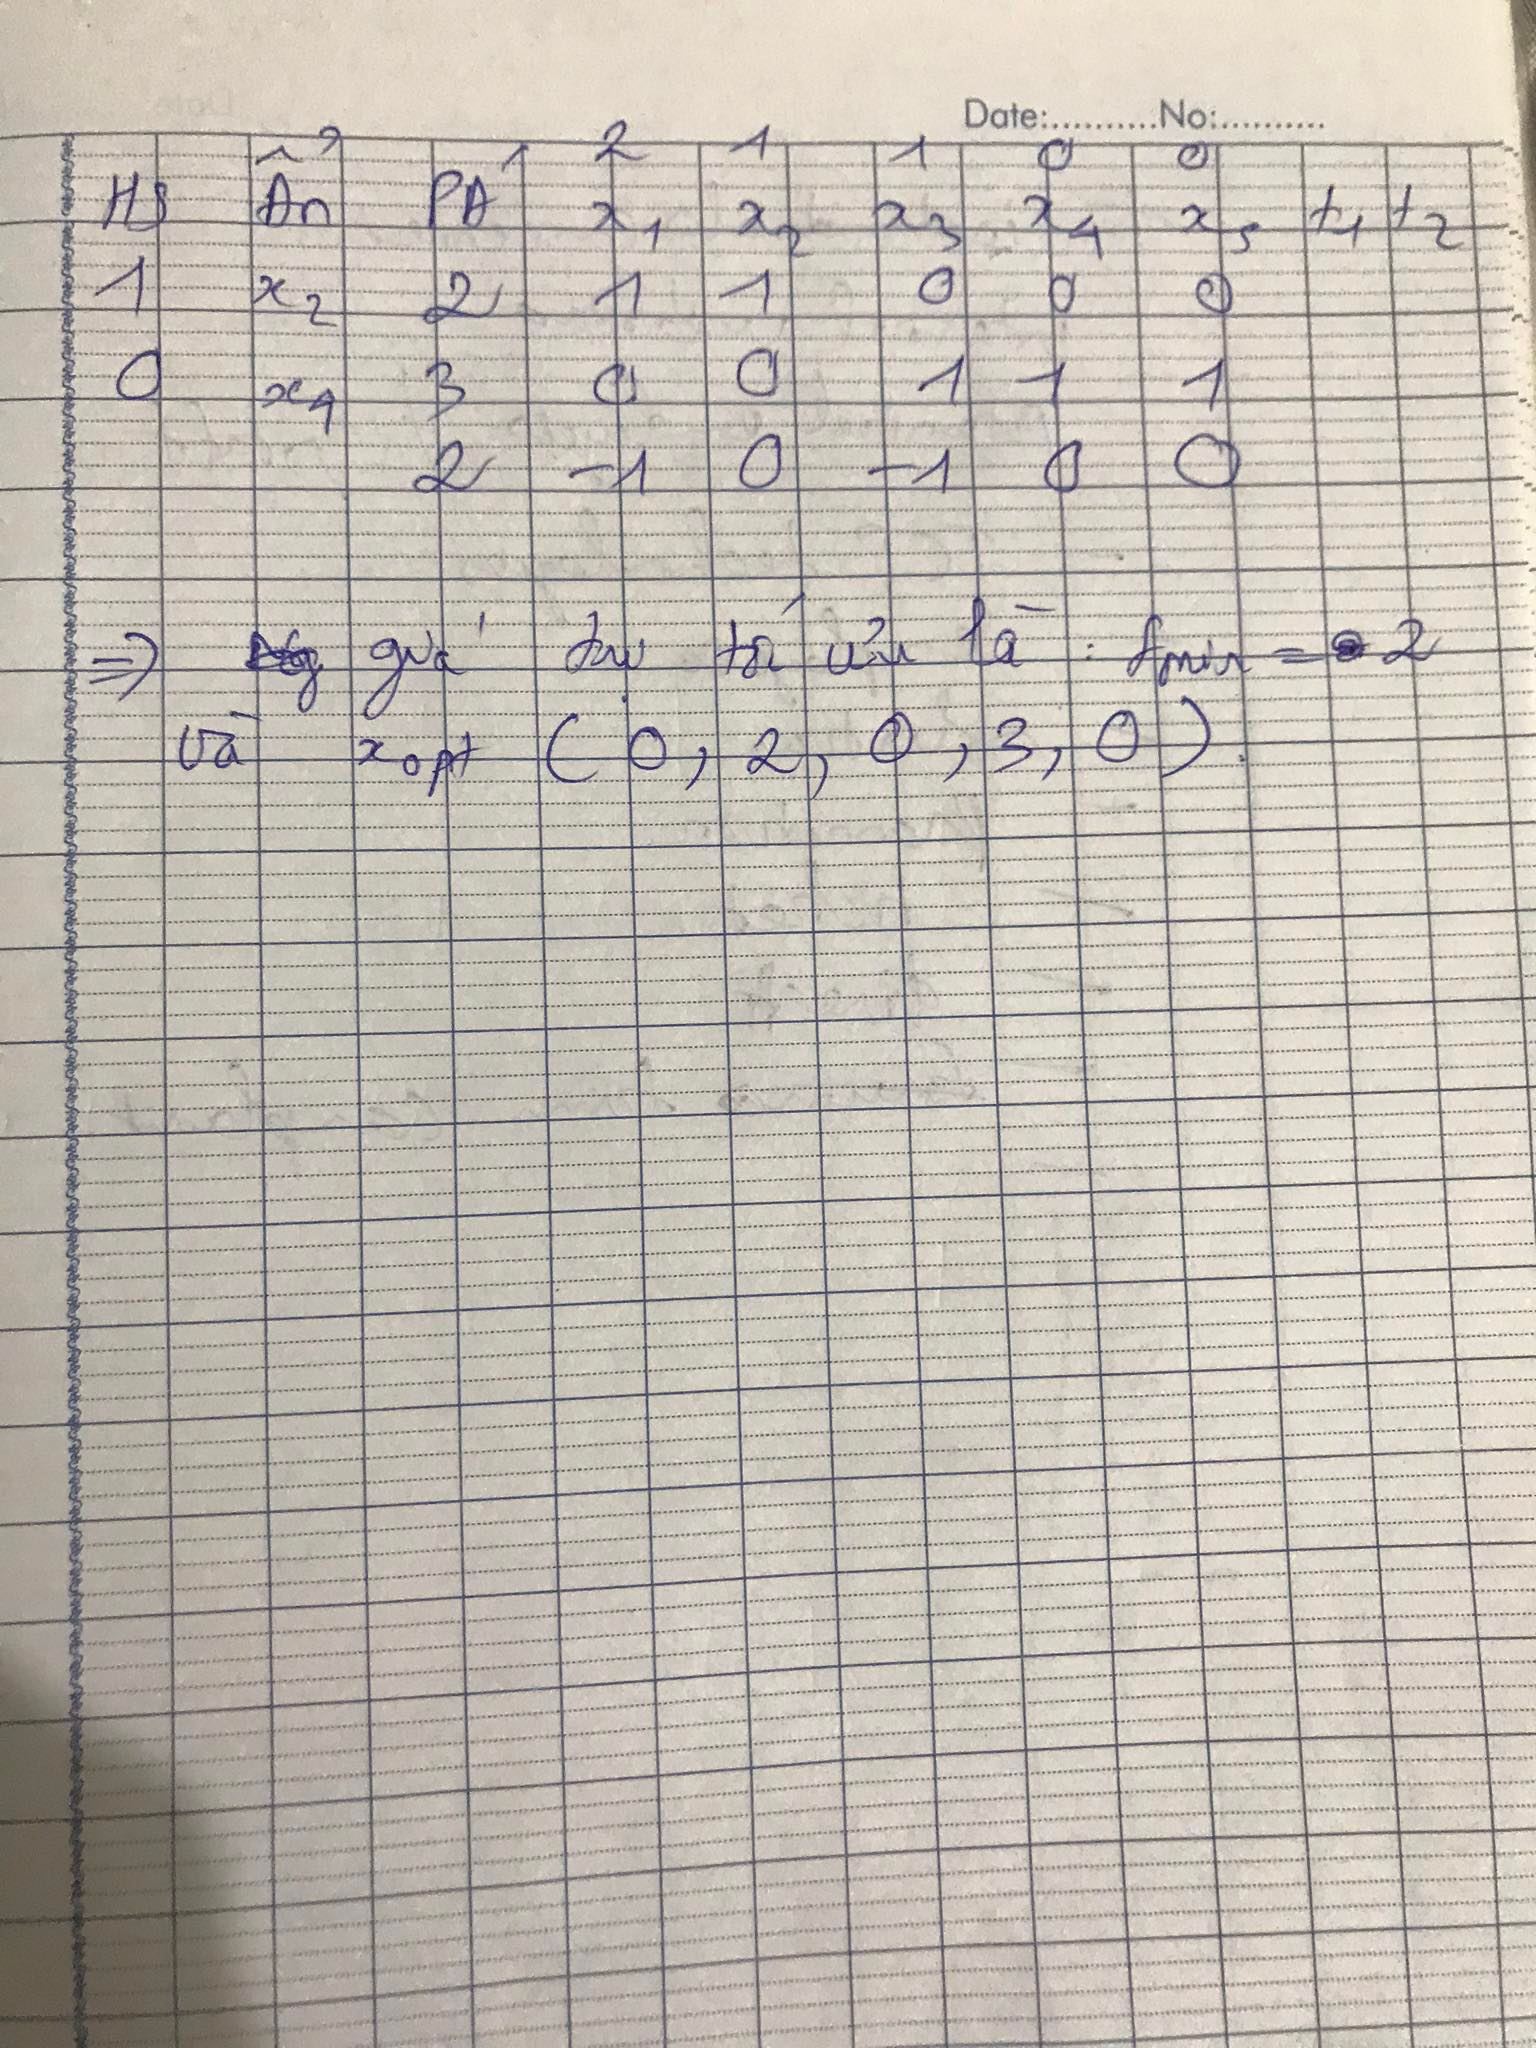 Date:..........No:..........
2 1 1 0 0
HS Ẩn PA x1 x2 x3 x4 x5 t1 t2
1 x2 2 1 1 0 0 0
0 x4 3 0 0 1 1 1
2 -1 0 -1 0 0
=> giá trị tối ưu là : fmin = 2
và xopt ( 0, 2, 0, 3, 0 ).